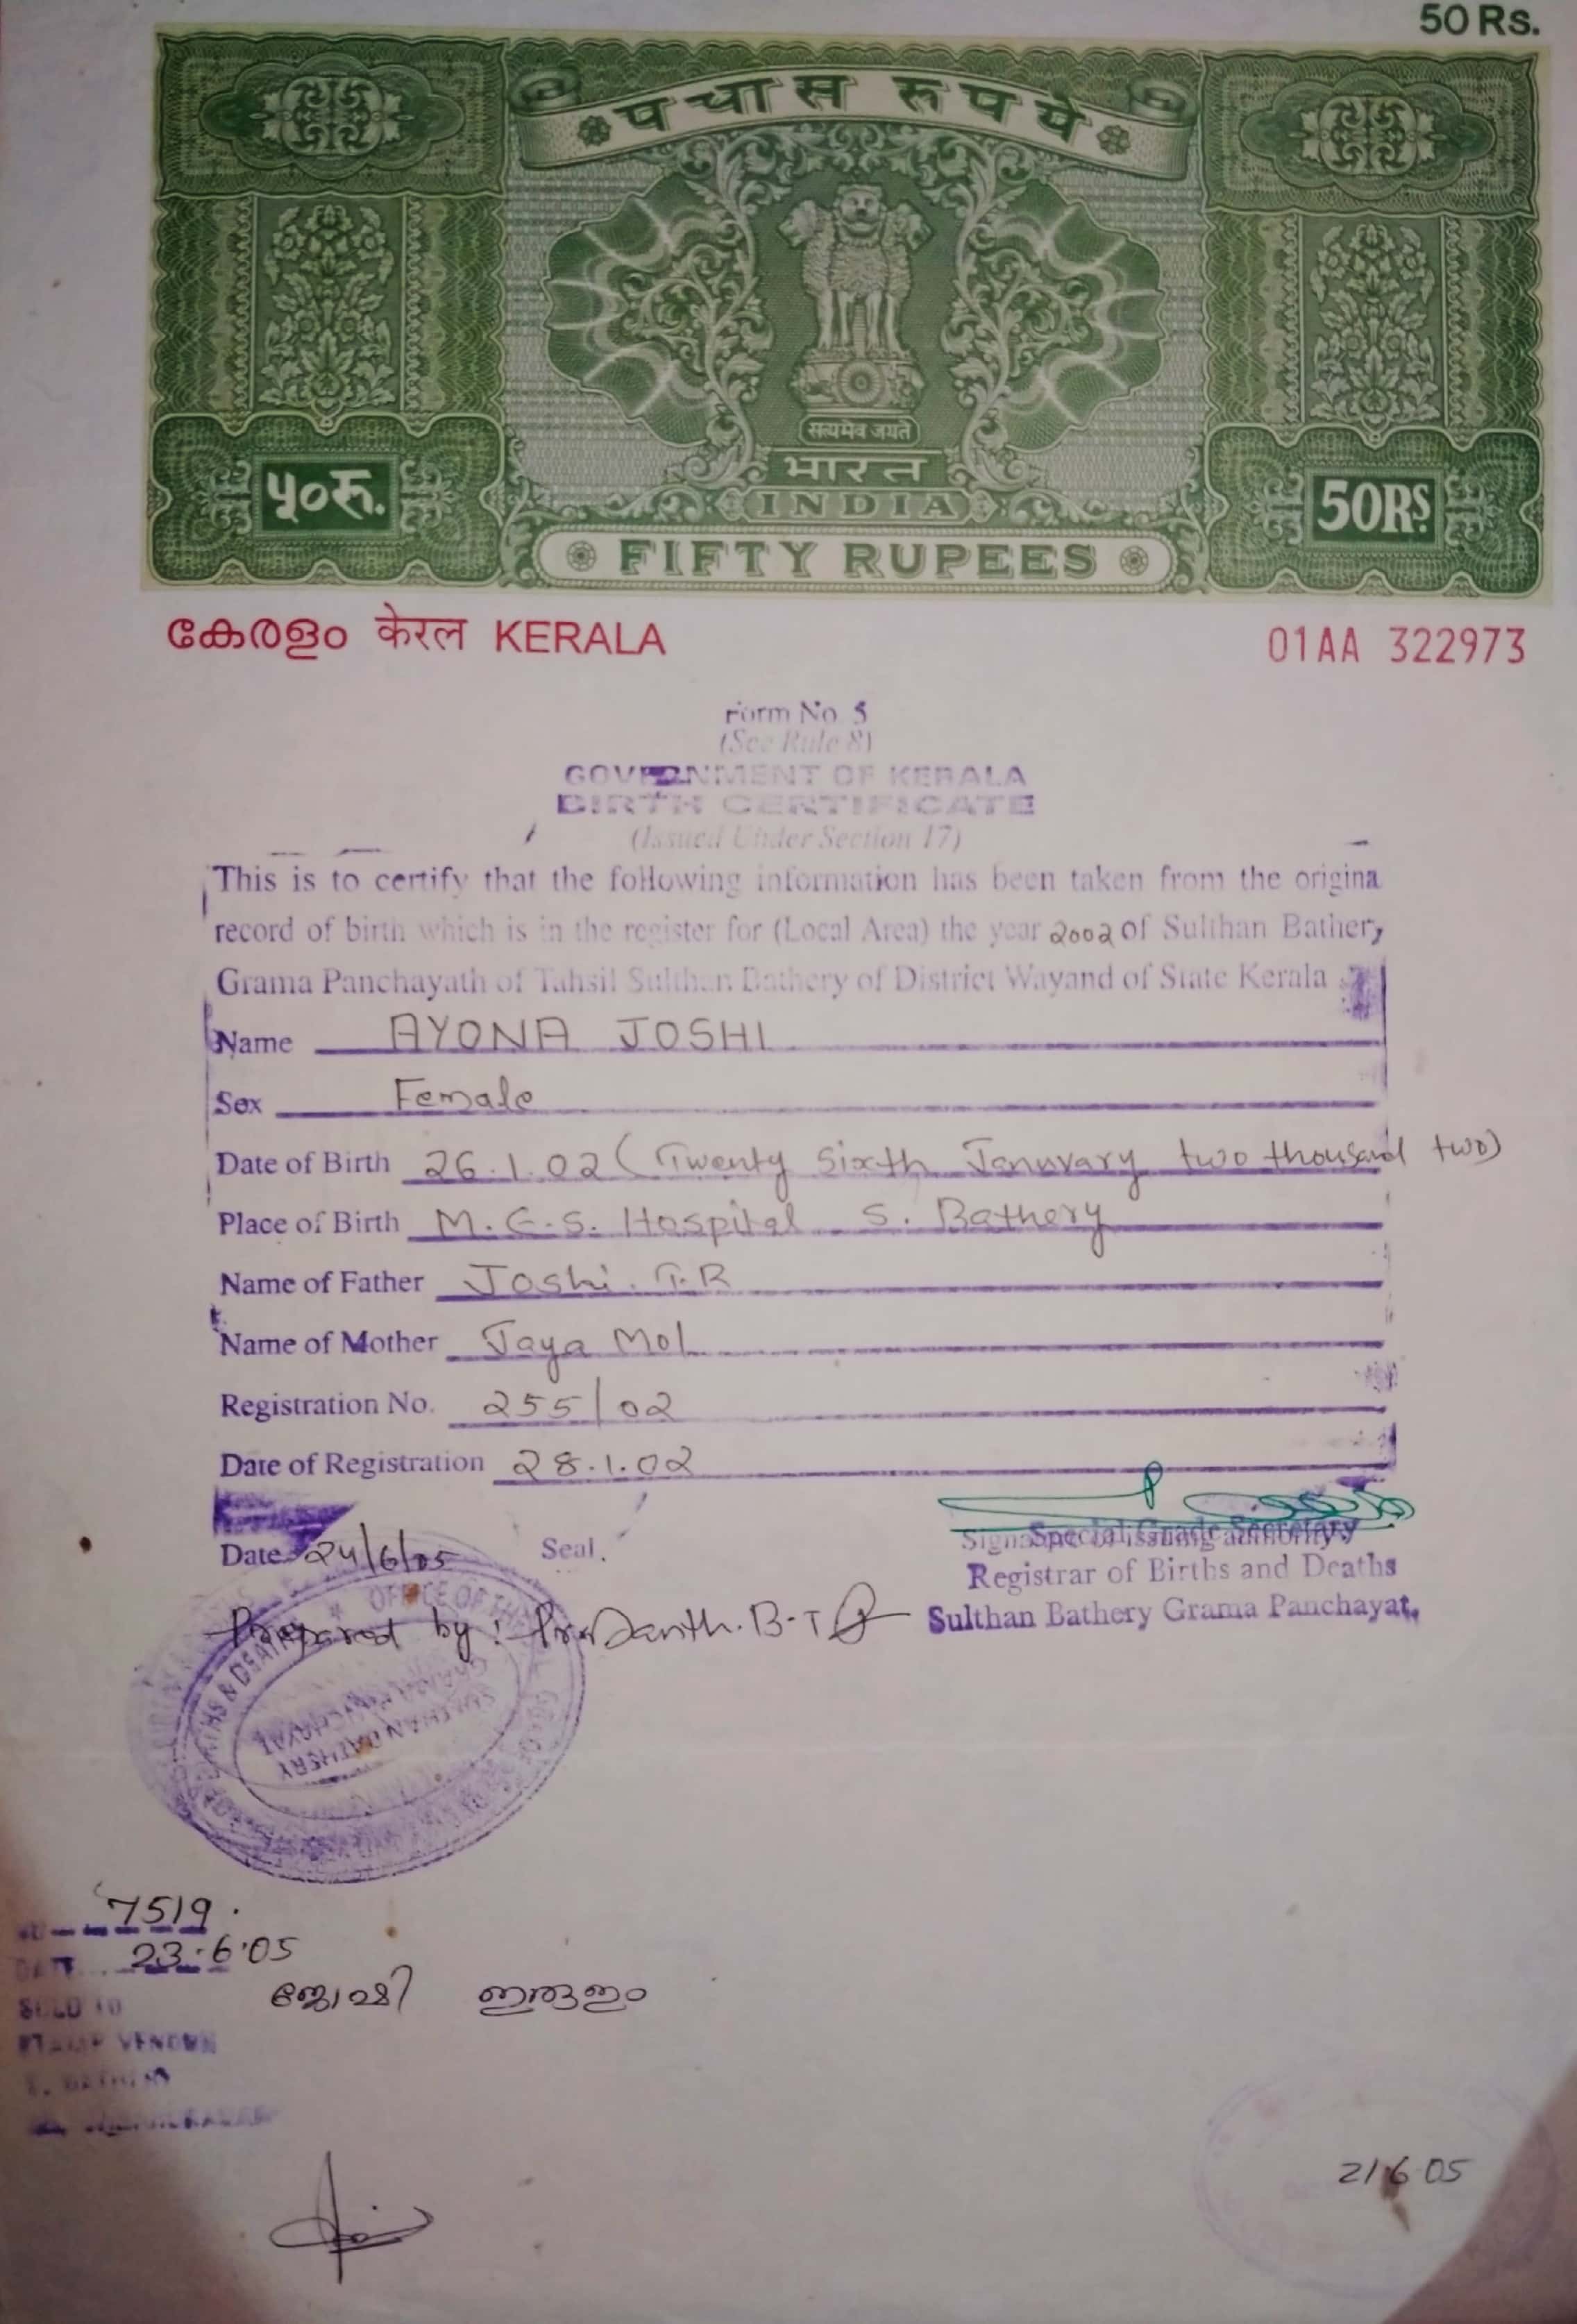 50 Rs.
पचास रुपये
सत्यमेव जयते
भारत
INDIA
५०रु.
50RS.
FIFTY RUPEES
കേരളം केरल KERALA
01AA 322973
Form No. 5
(See Rule 8)
GOVERNMENT OF KERALA
BIRTH CERTIFICATE
(Issued Under Section 17)
This is to certify that the following information has been taken from the origina
record of birth which is in the register for (Local Area) the year 2002 of Sulthan Bathery
Grama Panchayath of Tahsil Sulthan Bathery of District Wayand of State Kerala
Name AYONA JOSHI
Sex Female
Date of Birth 26.1.02 (Twenty Sixth Januvary two thousand two)
Place of Birth M.E.S. Hospital S. Bathery
Name of Father Joshi. T.R
Name of Mother Jaya Mol
Registration No. 255/02
Date of Registration 28.1.02
Date 24/6/05
Seal.
Special Grade Secretary
Signature of issuing authority
Registrar of Births and Deaths
Sulthan Bathery Grama Panchayat.
Prepared by: Prasanth.B.T
OFFICE OF THE
BIRTHS & DEATHS
SULTHAN BATHERY
GRAMA PANCHAYAT
7519.
DATE 23.6.05
SOLD TO ജോഷി ഇരുളം
STAMP VENDOR
S. BATHERY
21.6.05